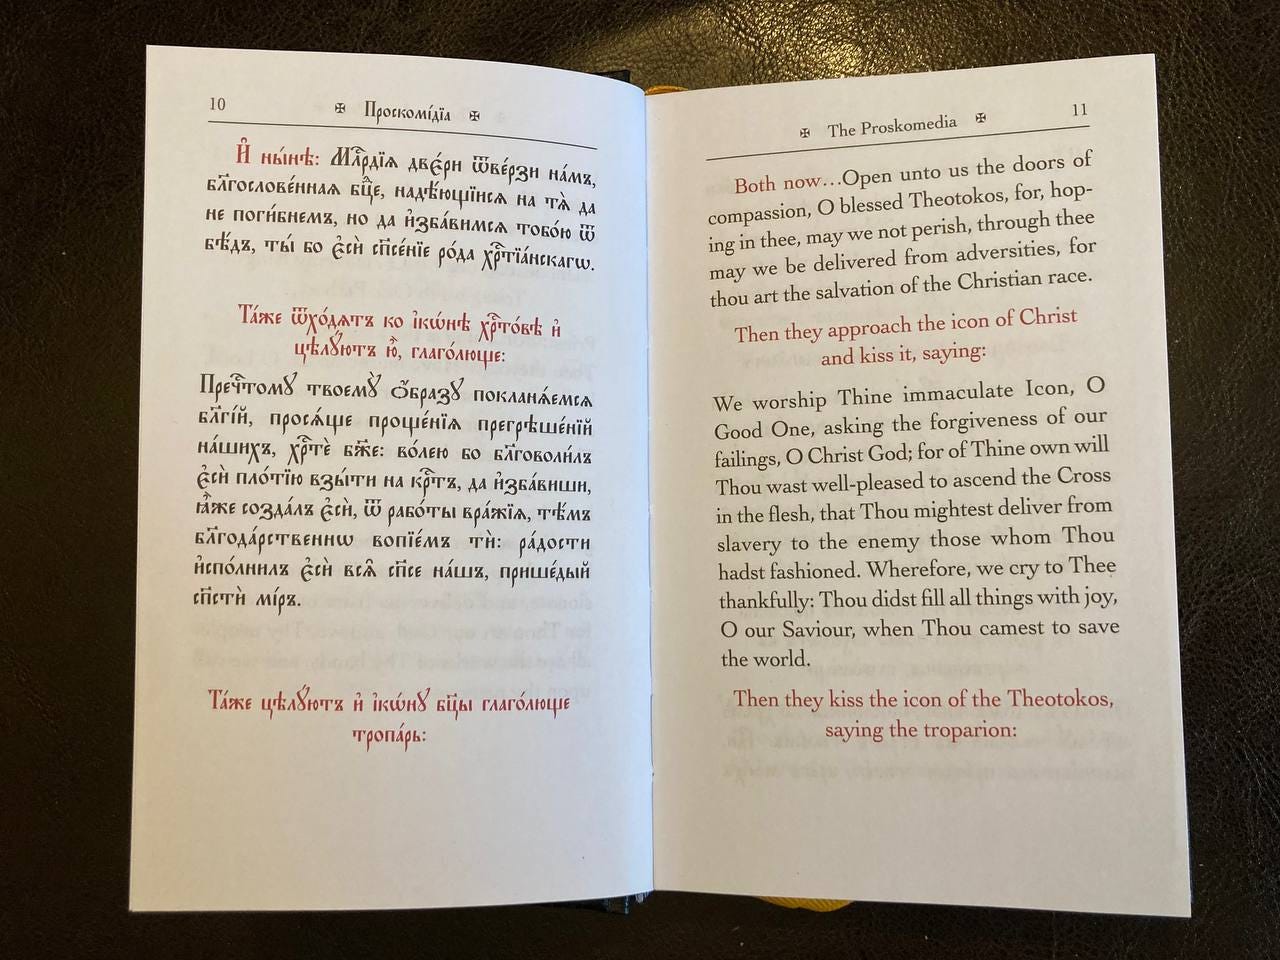 10
✠ Проскомі́дїа ✠
И҆ ны́нѣ: Млⷭ҇рдїѧ две́ри ѿве́рзи на́мъ,
блгⷭ҇ослове́ннаѧ бцⷣе, надѣ́ющїисѧ на тѧ̀ да
не поги́бнемъ, но да и҆зба́вимсѧ тобо́ю ѿ
бѣ́дъ, ты́ бо є҆сѝ спⷭ҇се́нїе ро́да хрⷭ҇тїа́нскагѡ.
Та́же ѿхо́дѧтъ ко і҆кѡ́нѣ хрⷭ҇то́вѣ и҆
цѣлꙋ́ютъ ю҆̀, глаго́люще:
Пречⷭ҇томꙋ твоемꙋ̀ ѻ҆́бразꙋ покланѧ́емсѧ
бл҃гі́й, просѧ́ще проще́нїѧ прегрѣше́нїй
на́шихъ, хрⷭ҇тѐ бж҃е: во́лею бо бл҃говоли́лъ
є҆сѝ пло́тїю взы́ти на крⷭ҇тъ, да и҆зба́виши,
ꙗ҆̀же созда́лъ є҆сѝ, ѿ рабо́ты вра́жїѧ, тѣ́мъ
бл҃года́рственнѡ вопїе́мъ тѝ: ра́дости
и҆спо́лнилъ є҆сѝ всѧ̑ сп҃се на́шъ, прише́дый
сп҃стѝ мі́ръ.
Та́же цѣлꙋ́ютъ и҆ і҆кѡ́нꙋ бцⷣы глаго́люще
тропа́рь:
✠ The Proskomedia ✠
11
Both now…Open unto us the doors of
compassion, O blessed Theotokos, for, hop-
ing in thee, may we not perish, through thee
may we be delivered from adversities, for
thou art the salvation of the Christian race.
Then they approach the icon of Christ
and kiss it, saying:
We worship Thine immaculate Icon, O
Good One, asking the forgiveness of our
failings, O Christ God; for of Thine own will
Thou wast well-pleased to ascend the Cross
in the flesh, that Thou mightest deliver from
slavery to the enemy those whom Thou
hadst fashioned. Wherefore, we cry to Thee
thankfully: Thou didst fill all things with joy,
O our Saviour, when Thou camest to save
the world.
Then they kiss the icon of the Theotokos,
saying the troparion: